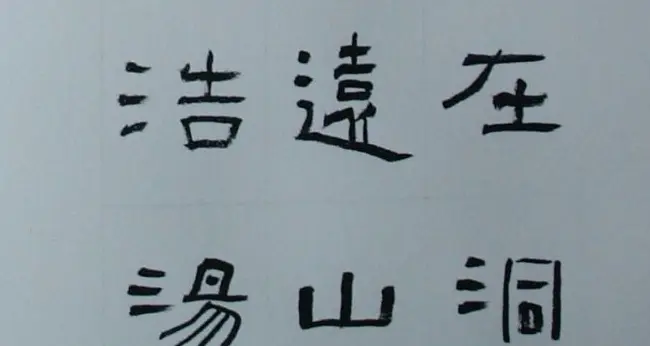 在洞
遠山
浩湯